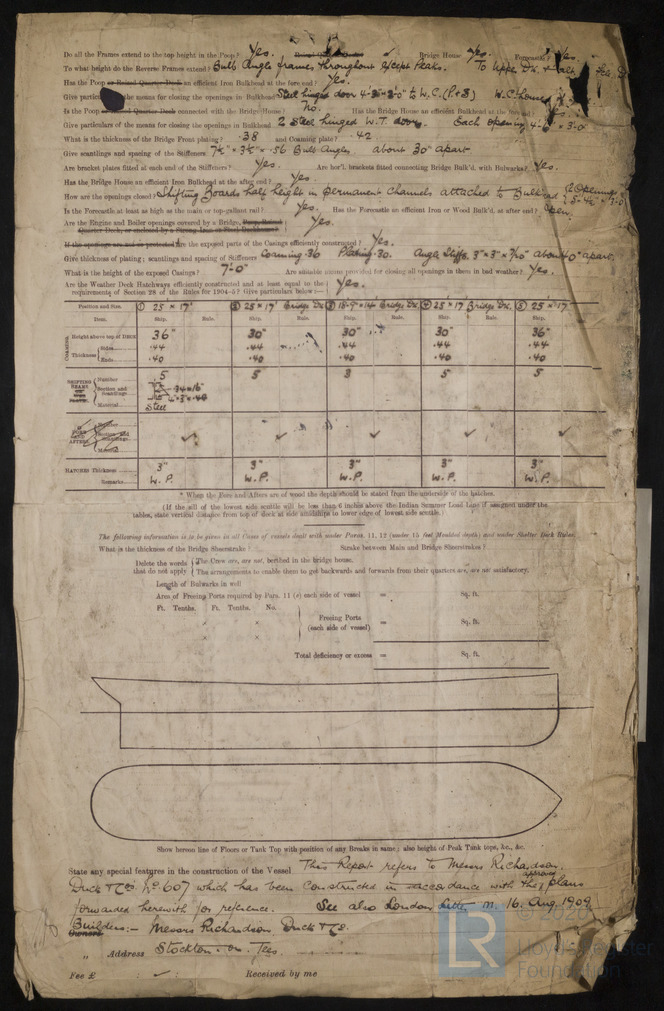 Do all the Frames extend to the top height in the Poop? Yes. Bridge House Yes. Forecastle? Yes.
To what height do the Reverse Frames extend? Bulb Angle frames throughout except Peaks. To Upper Dk.
Has the Poop or Raised Quarter Deck an efficient Iron Bulkhead at the fore end? Yes.
Give the means for closing the openings in Bulkhead Steel hinged door to W.C. (P & S) W.C. house
Is the Poop or Raised Quarter Deck connected with the Bridge House? No. Has the Bridge House an efficient Bulkhead at the fore end?
Give particulars of the means for closing the openings in Bulkhead 2 Steel hinged W.T. doors. Each opening 3-0
What is the thickness of the Bridge Front plating? .38 and Coaming plate? .42
Give scantlings and spacing of the Stiffeners 7½" × 3½" × .56 Bulb Angles about 30" apart
Are bracket plates fitted at each end of the Stiffeners? Yes. Are hor'l. brackets fitted connecting Bridge Bulk'd. with Bulwarks? Yes.
Has the Bridge House an efficient Iron Bulkhead at the after end? Yes.
How are the openings closed? Shifting Boards half height in permanent Channels attached to Bulkhead (2 Openings
Is the Forecastle at least as high as the main or top-gallant rail? Yes. Has the Forecastle an efficient Iron or Wood Bulk'd. at after end? Open.
Are the Engine and Boiler openings covered by a Bridge, Poop, Raised
Quarter Deck, or enclosed by a Strong Iron or Steel Deckhouse? Yes.
If the openings are so protected Are the exposed parts of the Casings efficiently constructed? Yes.
Give thickness of plating; scantlings and spacing of Stiffeners Coaming .36 Plating .30. Angle Stiffs. 3" × 3" × 7/20" about 40" apart.
What is the height of the exposed Casings? 7'-0" Are suitable means provided for closing all openings in them in bad weather? Yes.
Are the Weather Deck Hatchways efficiently constructed and at least equal to the
requirements of Section 28 of the Rules for 1904-5? Give particulars below:— Yes.
Position and Size. ① 25 × 17' ② 25 × 17' Bridge Dk. ③ 18-9 × 14 Bridge Dk. ④ 25 × 17 Bridge Dk. ⑤ 25 × 17'
Item. Ship. Rule. Ship. Rule. Ship. Rule. Ship. Rule. Ship. Rule.
COAMING Height above top of DECK 36" 30" 30" 30" 36"
Thickness Sides .44 .44 .44 .44 .44
Ends .40 .40 .40 .40 .40
SHIFTING BEAMS Number 5 5 3 5 5
Section and Scantlings
Material Steel
FORE AND AFTERS Number
Section and Scantlings ✓ ✓ ✓ ✓ ✓
Material
HATCHES Thickness 3" 3" 3" 3" 3"
Remarks W.P. W.P. W.P. W.P. W.P.
* When the Fore and Afters are of wood the depth should be stated from the underside of the hatches.
(If the sill of the lowest side scuttle will be less than 6 inches above the Indian Summer Load Line if assigned under the
tables, state vertical distance from top of deck at side amidships to lower edge of lowest side scuttle.)
The following information is to be given in all Cases of vessels dealt with under Paras. 11, 12 (under 15 feet Moulded depth) and under Shelter Deck Rules.
What is the thickness of the Bridge Sheerstrake? Strake between Main and Bridge Sheerstrakes?
Delete the words that do not apply { The Crew are, are not, berthed in the bridge house.
The arrangements to enable them to get backwards and forwards from their quarters are, are not satisfactory.
Length of Bulwarks in well
Area of Freeing Ports required by Para. 11 (e) each side of vessel = Sq. ft.
Ft. Tenths. Ft. Tenths. No.
×
× × Freeing Ports (each side of vessel) = Sq. ft.
× ×
Total deficiency or excess = Sq. ft.
Show hereon line of Floors or Tank Top with position of any Breaks in same; also height of Peak Tank tops, &c., &c.
State any special features in the construction of the Vessel This Report refers to Messrs Richardson.
Duck & Co's No 607 which has been constructed in accordance with the approved plans
forwarded herewith for reference. See also London letter m. 16. Aug. 1909
Builders:— Messrs Richardson Duck & Co.
Owners
„ Address Stockton-on-Tees.
Fee £ : ✓ : Received by me
LR
© 2020
Lloyd's Register
Foundation